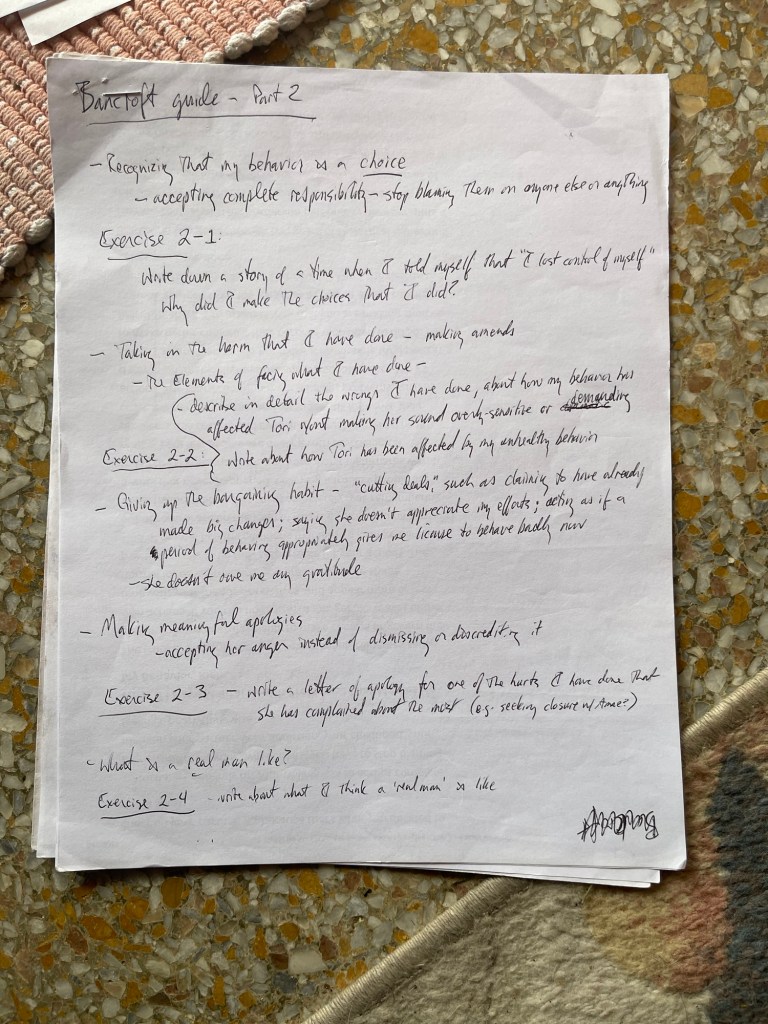 Bancroft guide - Part 2
- Recognizing that my behavior is a choice
- accepting complete responsibility - stop blaming them or anyone else or anything
Exercise 2-1:
Write down a story of a time when I told myself that "I lost control of myself"
Why did I make the choices that I did?
- Taking in the harm that I have done - making amends
- The Elements of facing what I have done -
- describe in detail the wrongs I have done, about how my behavior has
affected Tori w/out making her sound overly-sensitive or demanding
Exercise 2-2: Write about how Tori has been affected by my unhealthy behavior
- Giving up the bargaining habit - "cutting deals," such as claiming to have already
made big changes; saying she doesn't appreciate my efforts; acting as if a
period of behaving appropriately gives me license to behave badly now
- she doesn't owe me any gratitude
- Making meaningful apologies
- accepting her anger instead of dismissing or discrediting it
Exercise 2-3 - write a letter of apology for one of the hurts I have done that
she has complained about the most (e.g. seeking closure w/ ?)
- What is a real man like?
Exercise 2-4 - write about what I think a 'real man' is like